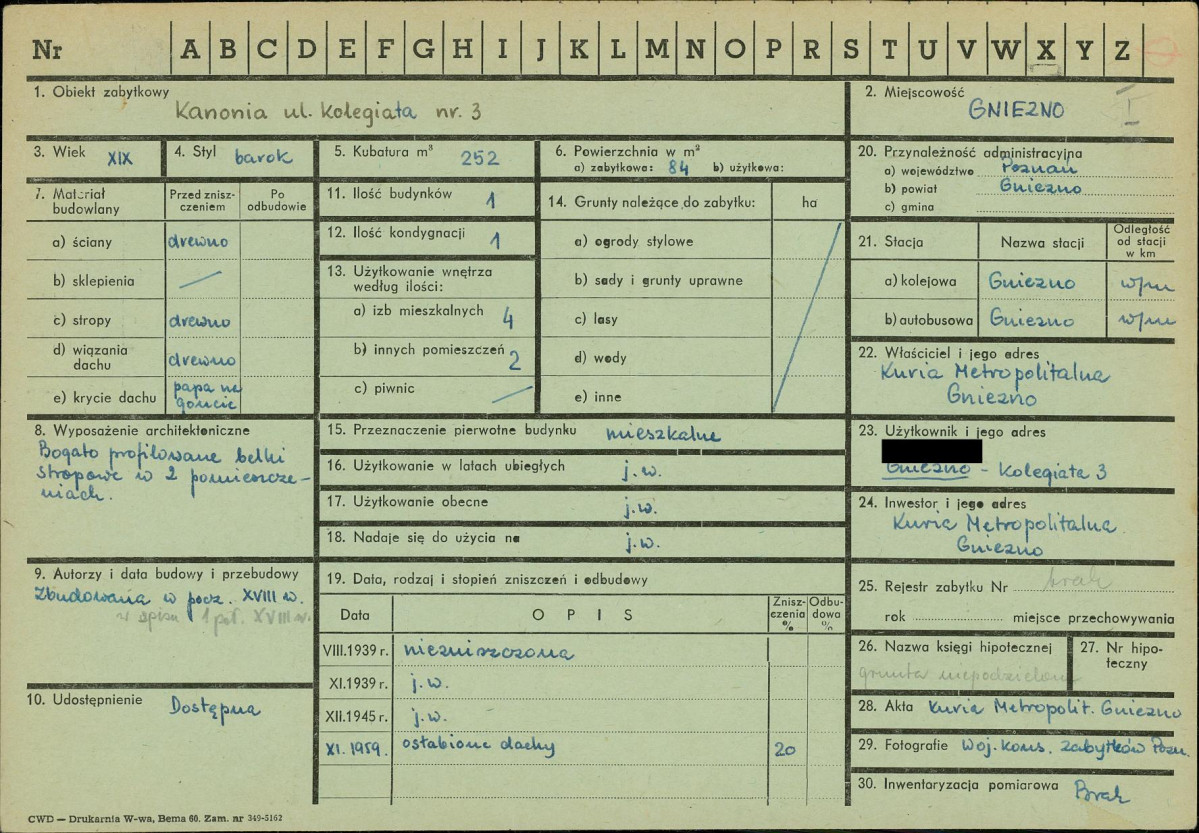 Nr A B C D E F G H I J K L M N O P R S T U V W X Y Z
1. Obiekt zabytkowy
Kanonia ul. Kolegiata nr. 3
2. Miejscowość
GNIEZNO
I
3. Wiek XIX
4. Styl barok
5. Kubatura m³ 252
6. Powierzchnia w m²
a) zabytkowa: 84 b) użytkowa:
20. Przynależność administracyjna
a) województwo Poznań
b) powiat Gniezno
c) gmina
7. Materiał budowlany
Przed zniszczeniem
Po odbudowie
a) ściany drewno
b) sklepienia
c) stropy drewno
d) wiązania dachu drewno
e) krycie dachu papa na goncie
11. Ilość budynków 1
12. Ilość kondygnacji 1
13. Użytkowanie wnętrza
według ilości:
a) izb mieszkalnych 4
b) innych pomieszczeń 2
c) piwnic
14. Grunty należące do zabytku: ha
a) ogrody stylowe
b) sady i grunty uprawne
c) lasy
d) wody
e) inne
21. Stacja
Nazwa stacji
Odległość
od stacji
w km
a) kolejowa Gniezno w/m
b) autobusowa Gniezno w/m
22. Właściciel i jego adres
Kuria Metropolitalna
Gniezno
8. Wyposażenie architektoniczne
Bogato profilowane belki
stropowe w 2 pomieszcze-
niach.
15. Przeznaczenie pierwotne budynku mieszkalne
16. Użytkowanie w latach ubiegłych j.w.
17. Użytkowanie obecne j.w.
18. Nadaje się do użycia na j.w.
23. Użytkownik i jego adres
Gniezno - Kolegiata 3
24. Inwestor i jego adres
Kuria Metropolitalna
Gniezno
9. Autorzy i data budowy i przebudowy
Zbudowana w pocz. XVIII w.
w spisie 1 poł. XVIII w.
10. Udostępnienie Dostępna
19. Data, rodzaj i stopień zniszczeń i odbudowy
Data
OPIS
Znisz-
czenia
%
Odbu-
dowa
%
VIII.1939 r. niezniszczona
XI.1939 r. j.w.
XII.1945 r. j.w.
XI. 1959. osłabione dachy 20
25. Rejestr zabytku Nr brak
rok miejsce przechowywania
26. Nazwa księgi hipotecznej
grunta niepodzielone
27. Nr hipo-
teczny
28. Akta Kuria Metropolit. Gniezno
29. Fotografie Woj. Kons. Zabytków Pozn.
30. Inwentoryzacja pomiarowa Brak
CWD — Drukarnia W-wa, Bema 60. Zam. nr 349-5162